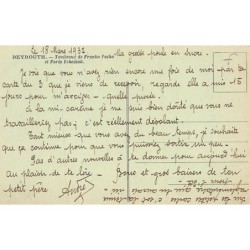 le 18 Mars 1932
la greche poule en sucre.
BEYROUTH. — Tombeaux de Franko Pacha
et Paris Echaimak.
Je vois que vous n'avez rien encore une fois de moi par
carte du 3 que je viens de recevoir, regarde elle a mis 15
jours pour m'arriver - quelle purée.
à la mi-carême je me suis bien douté que vous ne
travailleriez pas - c'est réellement désolant.
Tant mieux, que vous avez du beau temps, je souhaite
que ça continue pour que vous puissiez sortir un peu -
Pas d'autres nouvelles à te donner pour aujourd'hui
au plaisir de te lire - Bons et gros baisers de ton
petit père
André